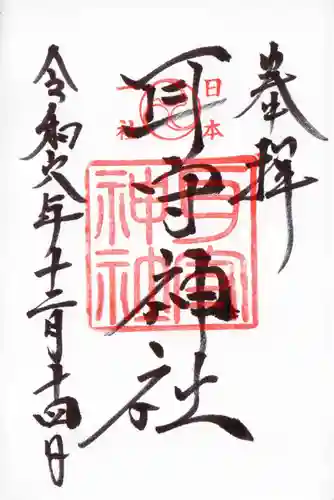 奉拝
日本
一社
耳守神社
耳守
神社
令和六年十二月十四日